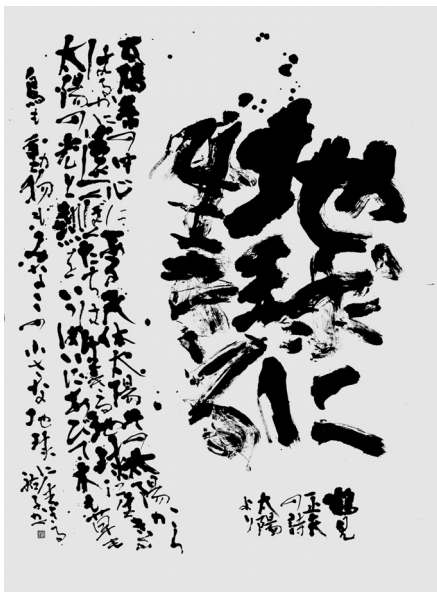 地球に
生きる
鶴見
正夫
の詩
太陽
より
太陽系の中心にある天体太陽その太陽から
はるかに遠くぼくたちは 地球に生きる
太陽の光と熱をいっぱいにあびて木も草も
鳥も動物もみなこの小さな地球に生きる